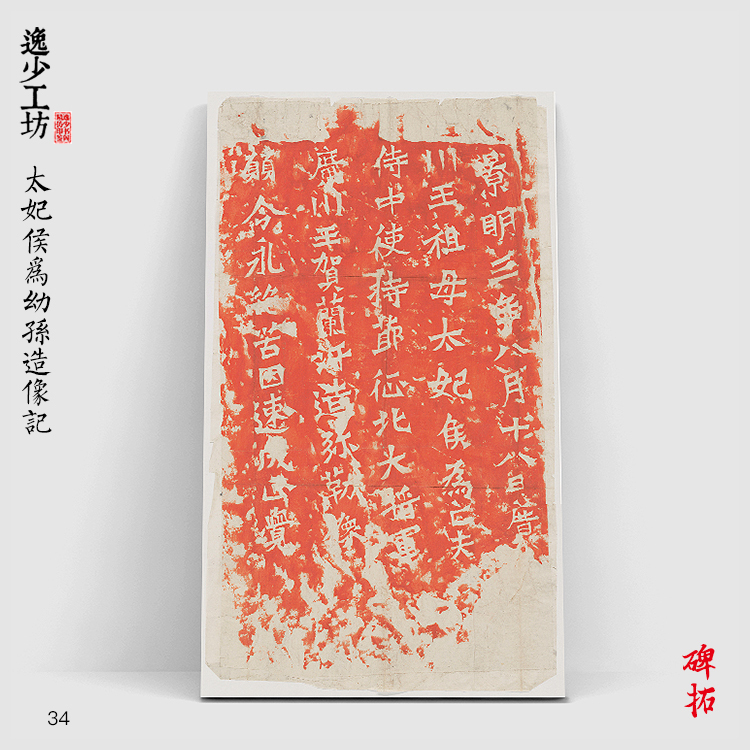 逸少工坊
太妃侯為幼孫造像記
景明三年八月十八日廣
川王祖母太妃侯為亡夫
侍中使持節征北大將軍
廣川王賀蘭汗造弥勒像
願令永絕苦因速成正覺
碑拓
34